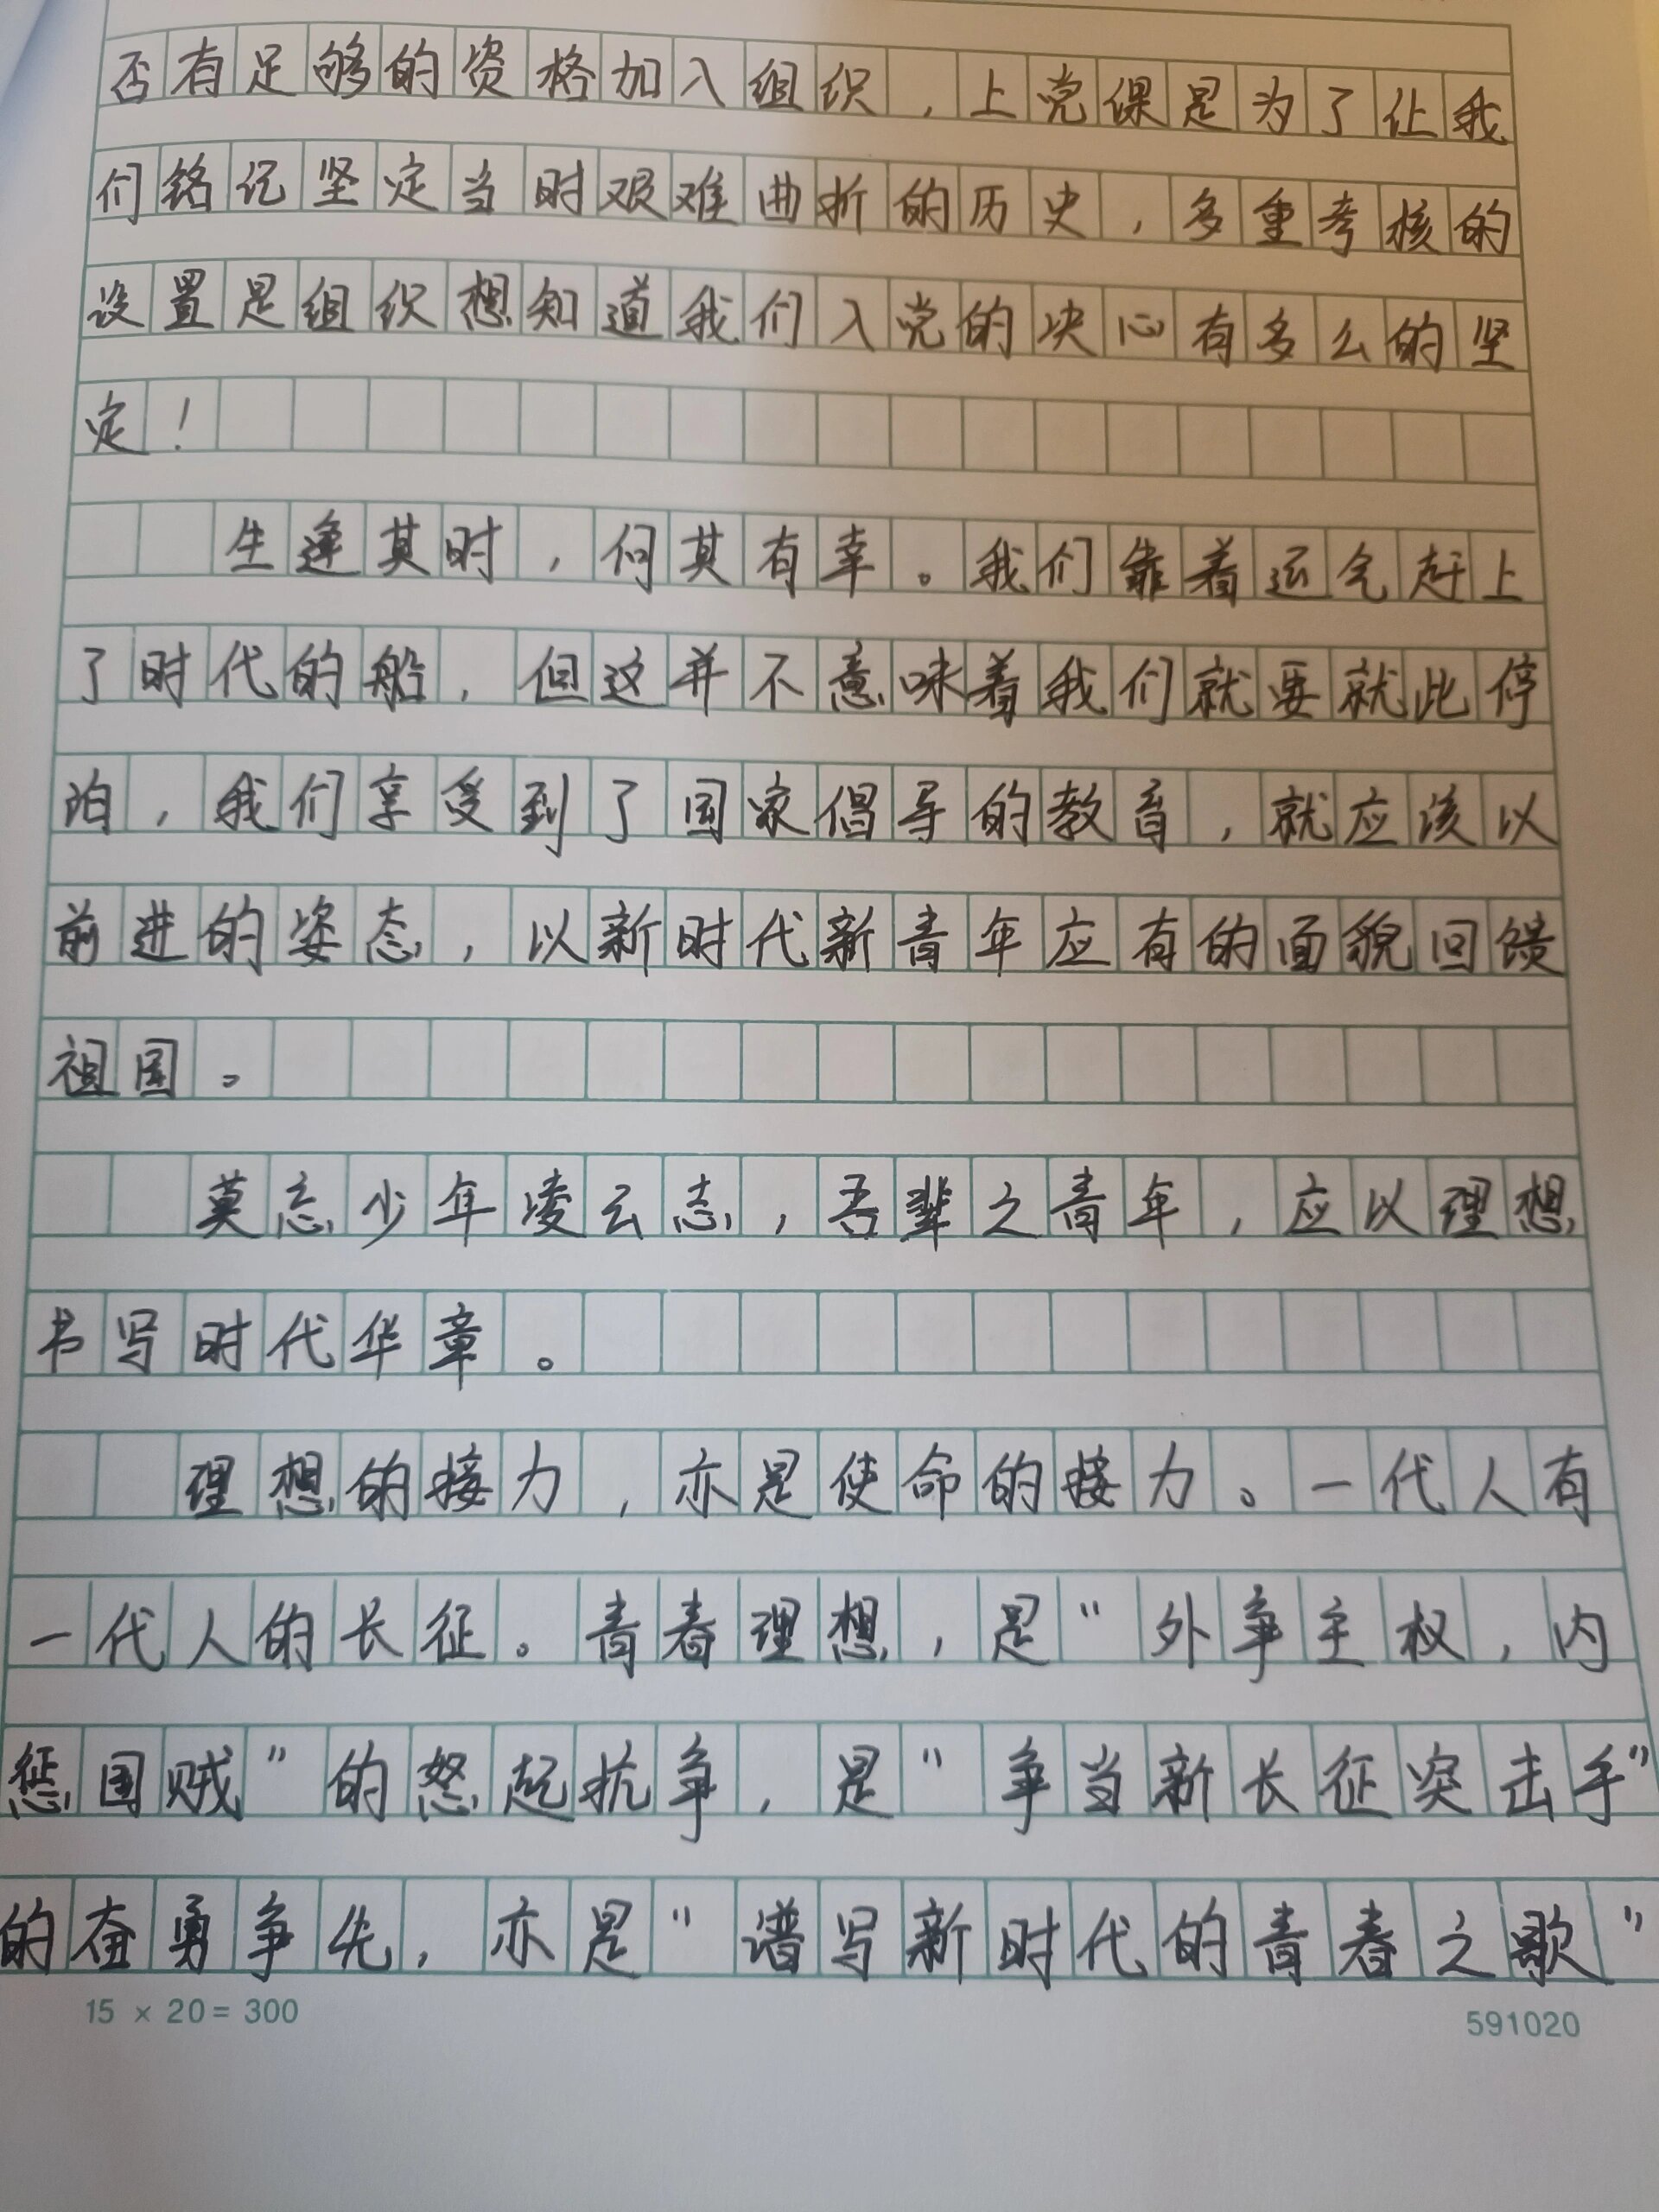 否有足够的资格加入组织，上党课是为了让我
们铭记坚定当时艰难曲折的历史，多重考核的
设置是组织想知道我们入党的决心有多么的坚
定！
生逢其时，何其有幸。我们靠着运气赶上
了时代的船，但这并不意味着我们就要就此停
泊，我们享受到了国家倡导的教育，就应该以
前进的姿态，以新时代新青年应有的面貌回馈
祖国。
莫忘少年凌云志，吾辈之青年，应以理想
书写时代华章。
理想的接力，亦是使命的接力。一代人有
一代人的长征。青春理想，是“外争主权，内
惩国贼”的怒起抗争，是“争当新长征突击手”
的奋勇争先，亦是“谱写新时代的青春之歌”
15 × 20 = 300
591020